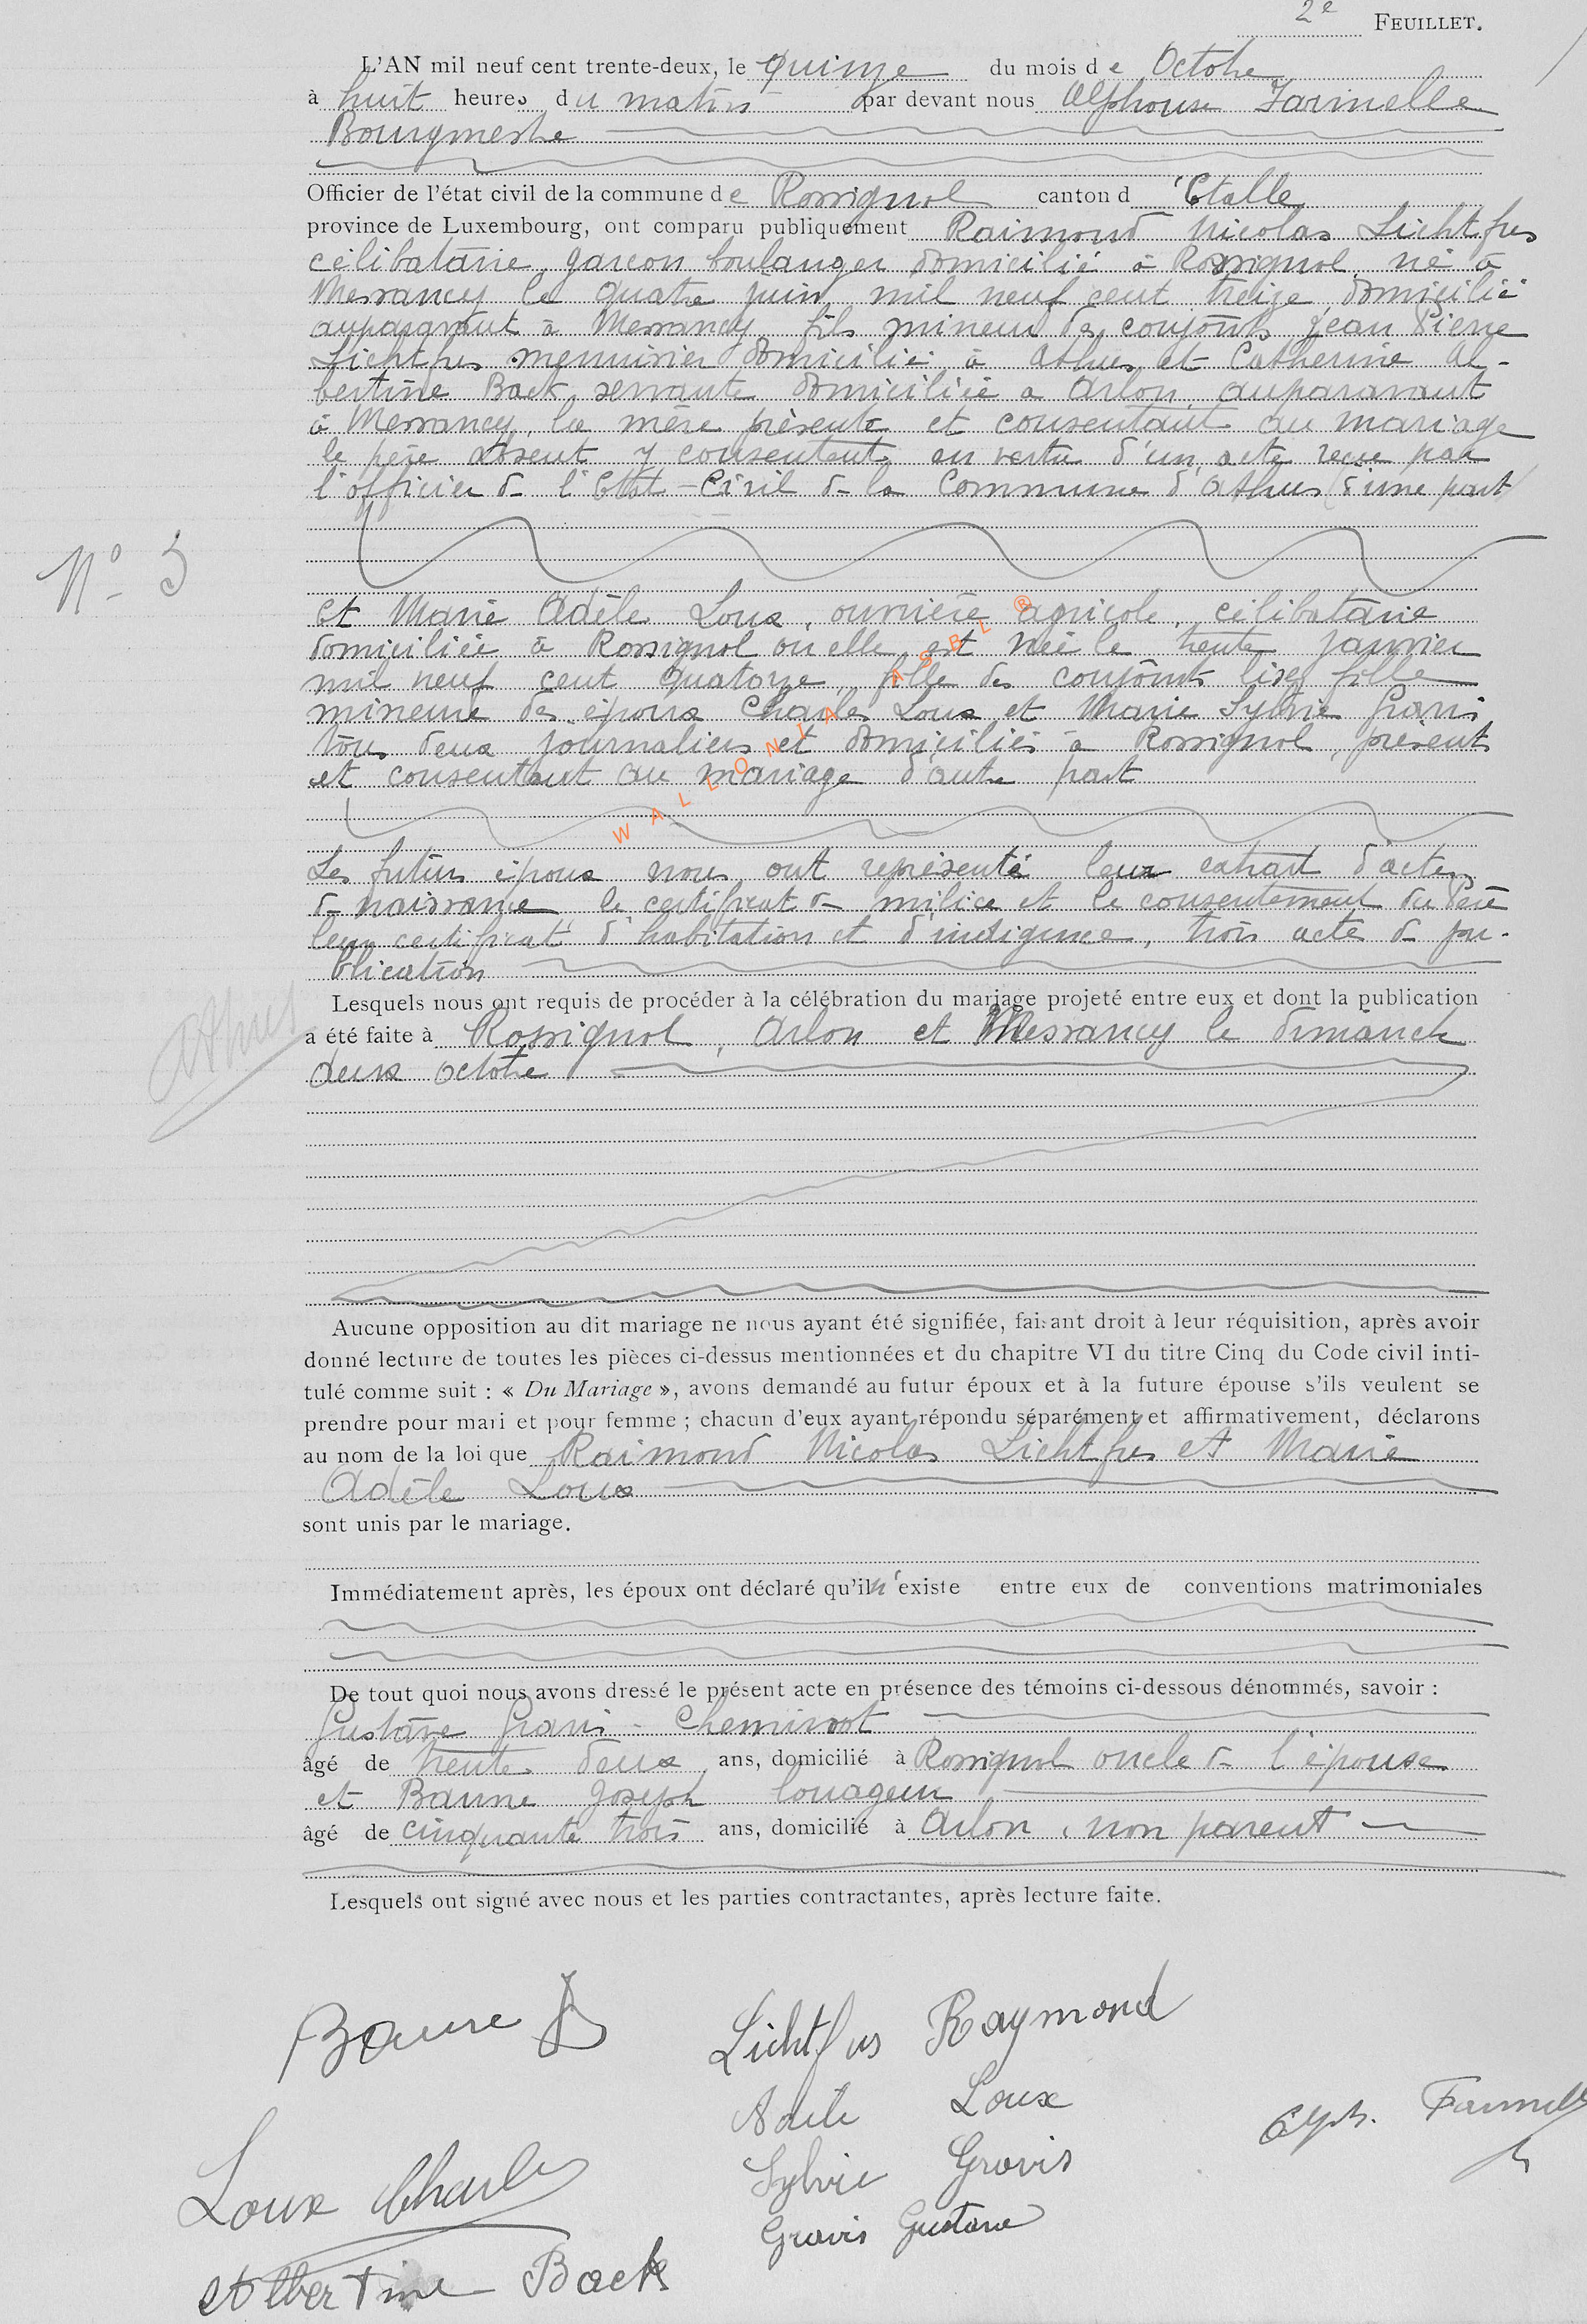 2e FEUILLET.
L'AN mil neuf cent trente-deux, le quinze du mois de Octobre
à huit heures du matin par devant nous Alphonse Farinelle
Bourgmestre
Officier de l'état civil de la commune de Rossignol canton d'Etalle
province de Luxembourg, ont comparu publiquement Raimond Nicolas Lichtfus
célibataire, garçon boulanger domicilié à Rossignol, né à
Messancy le quatre juin mil neuf cent treize domicilié
auparavant à Messancy fils mineur des conjoints Jean Pierre
Lichtfus menuisier domicilié à Athus et Catherine Al-
bertine Back servante domiciliée a Arlon, auparavant
à Messancy, la mère présente et consentant au mariage
le père absent y consentent en vertu d'un acte reçu par
l'officier de l'Etat-Civil de la Commune d'Athus (d'une part)
N° 3
et Marie Adèle Loux, ouvrière agricole, célibataire
domiciliée à Rossignol ou elle est née le trente janvier
mil neuf cent quatorze, fille des conjoints lisez fille
mineure des époux Charles Loux et Marie Sylvie Gravis
tous deux journaliers et domiciliés à Rossignol, présents
et consentant au mariage d'autre part
WALLONIA ASBL ®
Les futurs époux nous ont représenté leur extrait d'actes
de naissance le certificat de milice et le consentement du Père
leur certificat d'habitation et d'indigence, trois acte de pu-
blication
Lesquels nous ont requis de procéder à la célébration du mariage projeté entre eux et dont la publication
Athus
a été faite à Rossignol, Arlon et Messancy le dimanch
deux octobre
Aucune opposition au dit mariage ne nous ayant été signifiée, faisant droit à leur réquisition, après avoir
donné lecture de toutes les pièces ci-dessus mentionnées et du chapitre VI du titre Cinq du Code civil inti-
tulé comme suit : « Du Mariage », avons demandé au futur époux et à la future épouse s'ils veulent se
prendre pour mari et pour femme ; chacun d'eux ayant répondu séparément et affirmativement, déclarons
au nom de la loi que Raimond Nicolas Lichtfus et Marie
Adèle Loux
sont unis par le mariage.
Immédiatement après, les époux ont déclaré qu'il n'existe entre eux de conventions matrimoniales
De tout quoi nous avons dressé le présent acte en présence des témoins ci-dessous dénommés, savoir :
Gustave Gravis - Cheminot
âgé de trente deux ans, domicilié à Rossignol oncle de l'épouse
et Baune Joseph louageur
âgé de cinquante trois ans, domicilié à Arlon, non parent
Lesquels ont signé avec nous et les parties contractantes, après lecture faite.
Baune
Lichtfus Raymond
Adèle Loux
Alph. Farinelle
Sylvie Gravis
Loux Charles
Gravis Gustave
Albertine Back